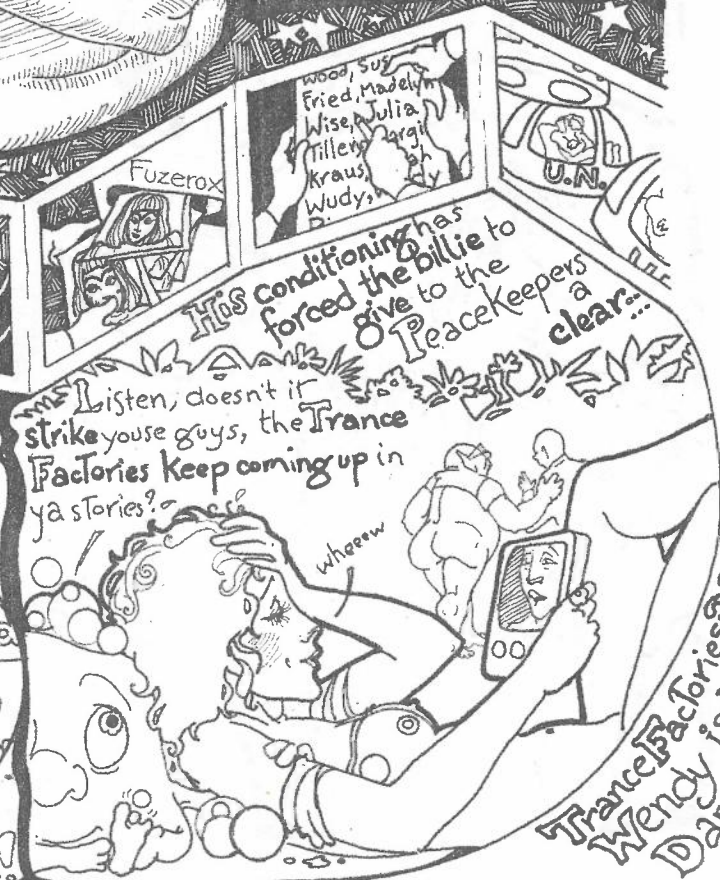 Fuzerox
Wood, Sue
Fried, Madelyn
Wise, Julia
Tillery
Kraus,
Wudy,
U.N.
His conditioning has
forced the billie to
give to the
PeaceKeepers
a
clear...
Listen, doesn't it
strike youse guys, the Trance
Factories keep coming up in
ya stories?
wheeew
Trance Factories
Wendy